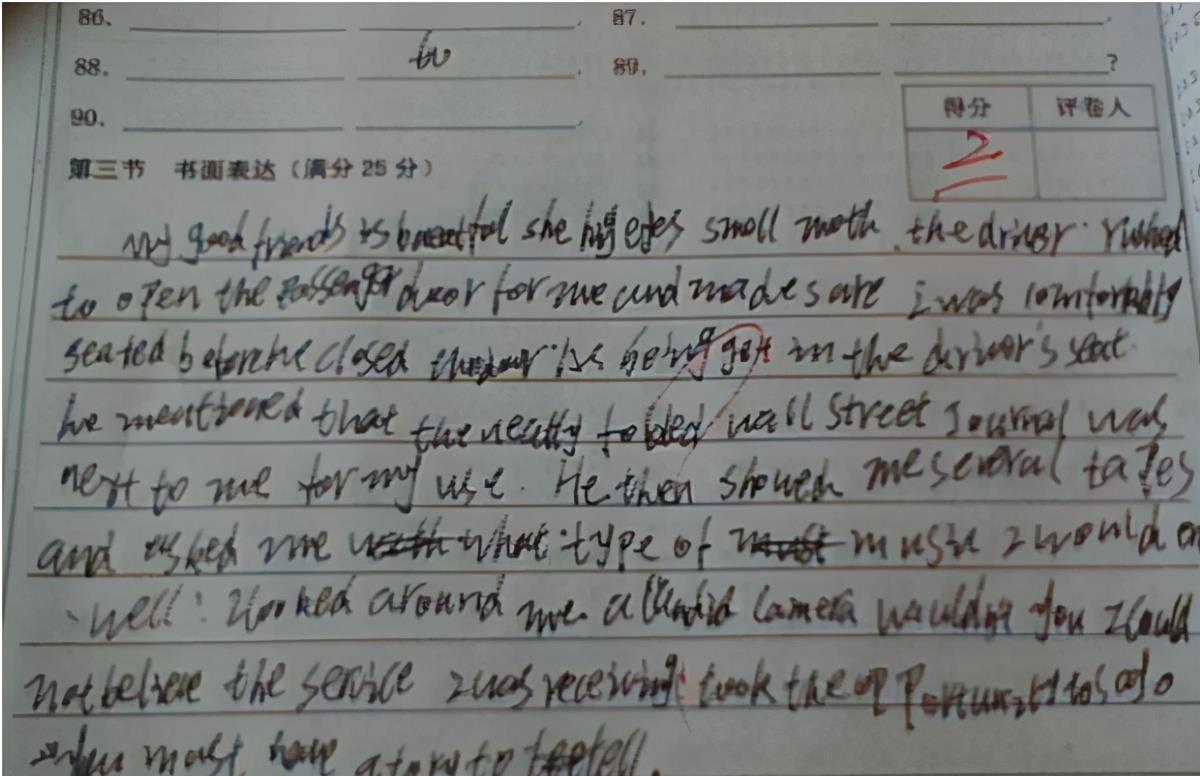 86、 .  87. .
88. to .  89. ?
90、 .
得分 评卷人
2
第三节 书面表达（满分 25 分）
my good friends is beautful she big eyes small moth . the driver rushed
to open the passenger door for me and made sare i was comfortably
seated before he closed the door. As being got in the driver's seat.
he mentioned that the neatly folded wall Street Journal was
next to me for my use. He then showed me several tapes
and asked me what type of music I would en
well! I looked around me. a Candid Camera wouldn't you I could
not believe the service I was receiving! took the opportunity to say
you must have a story to tell.